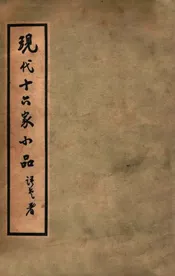 現代十六家小品